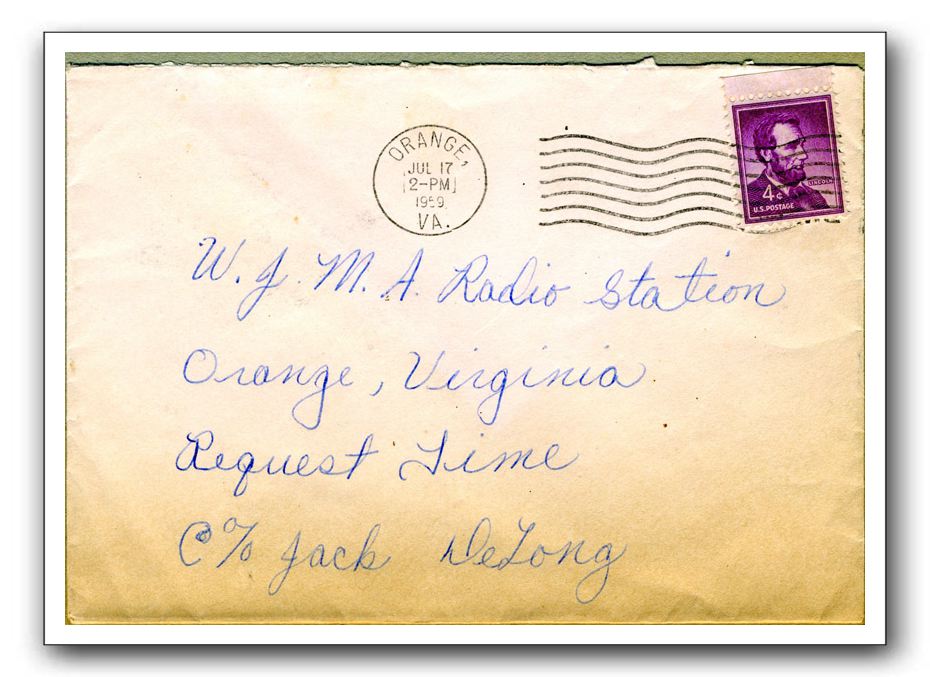 ORANGE,
JUL 17
2-PM
1959
VA.
LINCOLN
4¢
U.S. POSTAGE
W. J. M. A. Radio Station
Orange, Virginia
Request Time
C% Jack DeLong